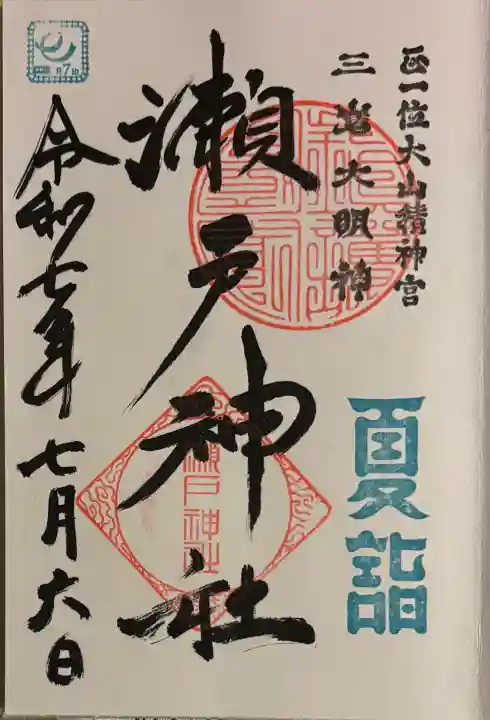 正一位大山積神宮
三島大明神
夏詣
瀬戸神社
瀬戸神社
令和七年七月六日